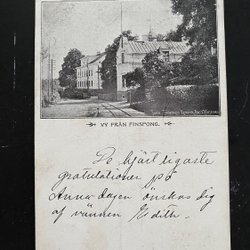 VY FRÅN FINSPONG.
De hjärtligaste
gratulationer på
Annadagen önskas dig
af vännen Edith.